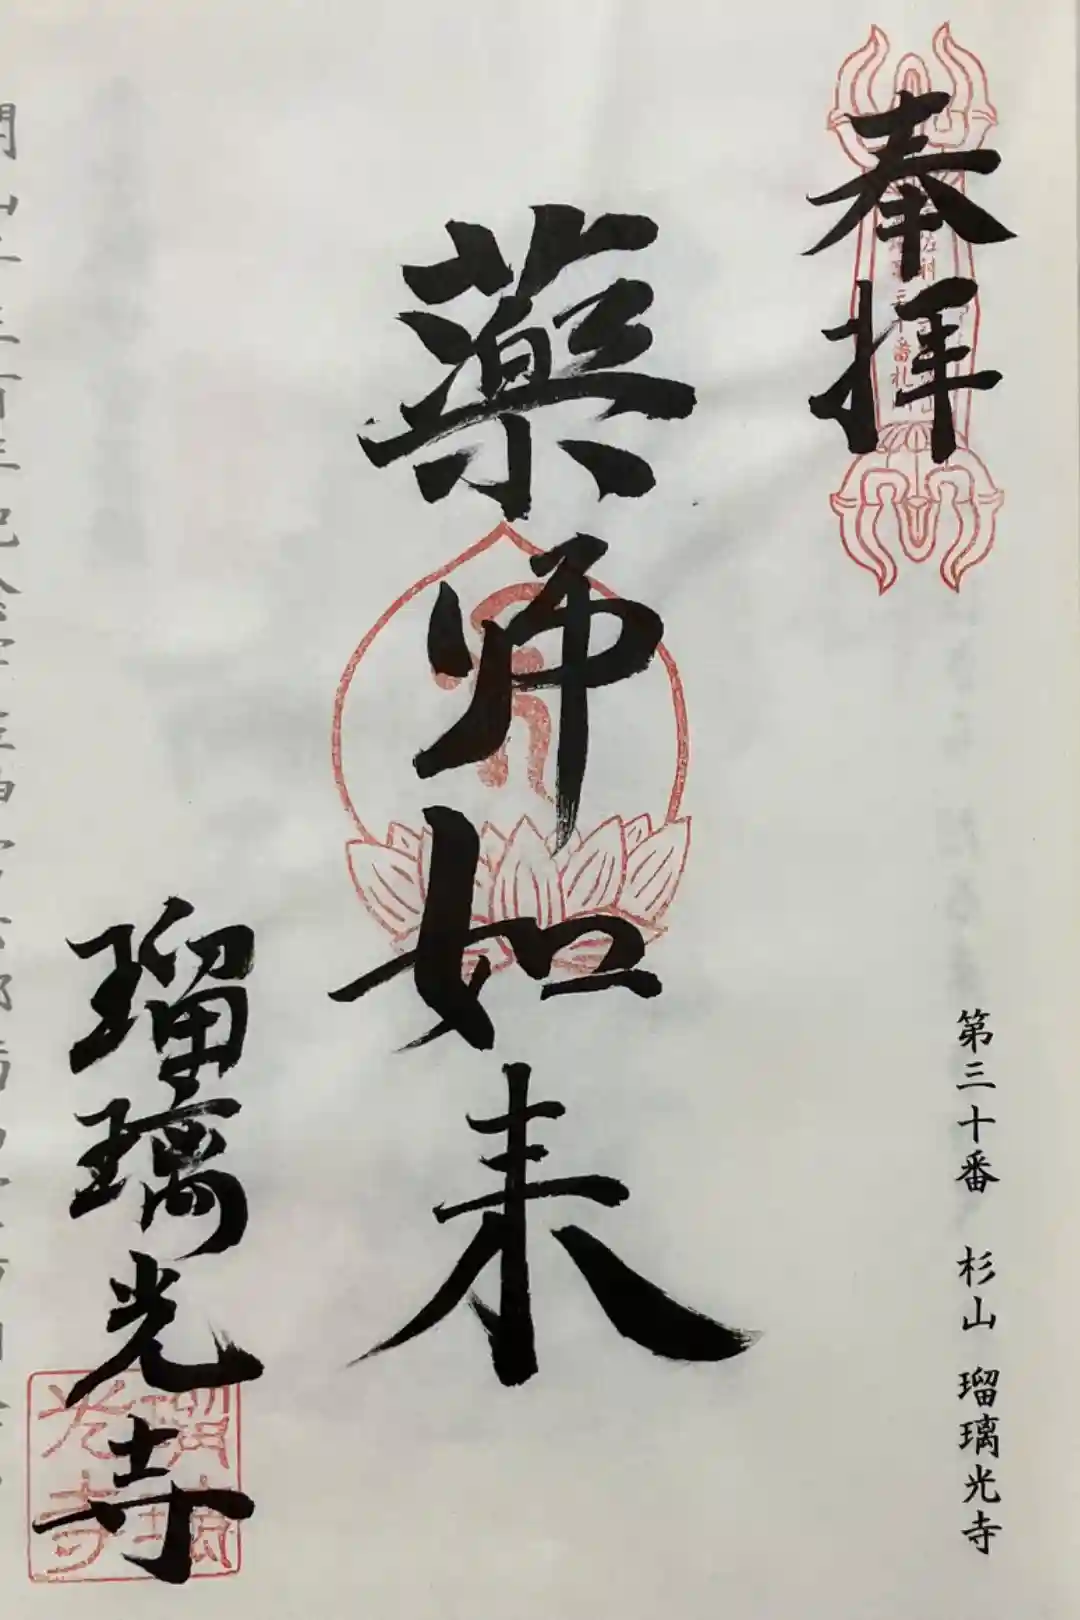 奉拝
第三十番 杉山 瑠璃光寺
薬师如来
瑠璃光寺
瑠璃光寺